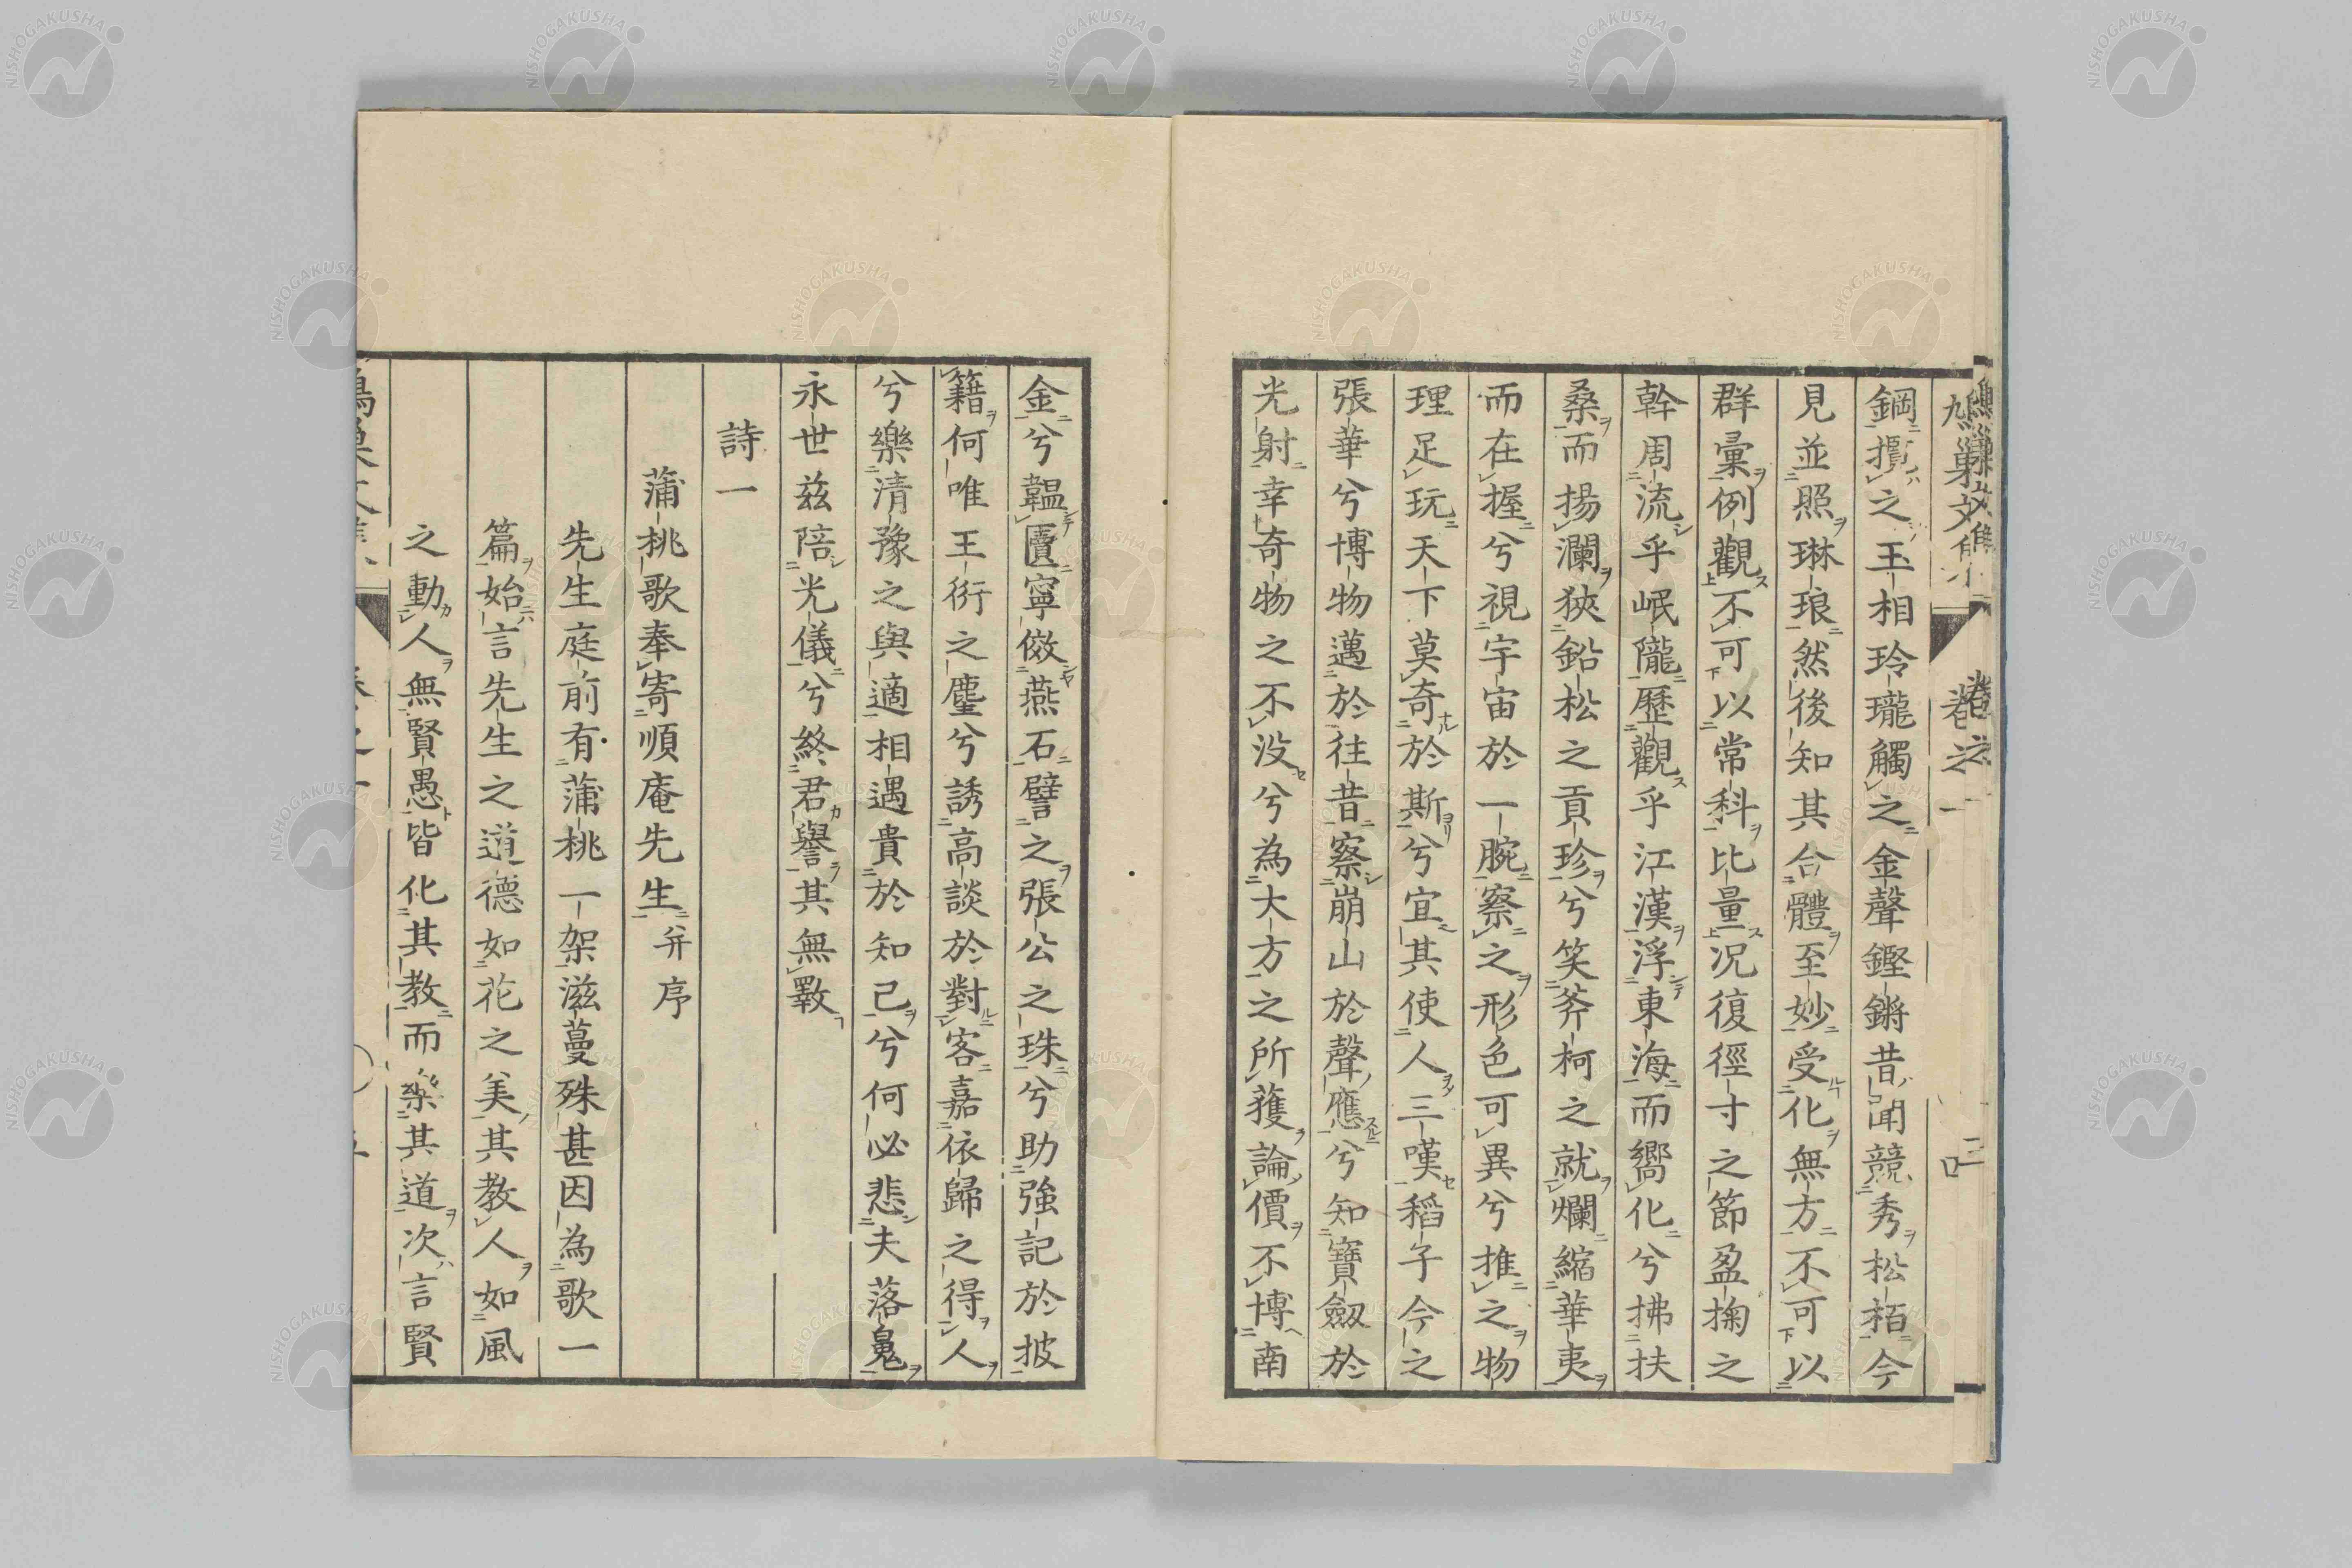 鋼攬之玉相玲瓏觸之金聲鏗鏘昔聞競秀松栢今
見並照琳琅然後知其合體至妙受化無方不可以
群彙例觀不可以常科比量况復徑寸之節盈掬之
幹周流乎岷隴歷觀乎江漢浮東海而嚮化兮拂扶
桑而揚瀾狹鉛松之貢珍兮笑荞柯之就爛縮華夷
而在握兮視宇宙於一腕察之形色可異兮推之物
理足玩天下莫奇於斯兮宜其使人三嘆稻子今之
張華兮博物邁於往昔察崩山於聲應兮知寶劔於
光射幸奇物之不没兮為大方之所獲論價不博南
金兮韞匵寧傚燕石譬之張公之珠兮助強記於披
籍何唯王衍之麈兮誘高談於對客嘉依歸之得人
兮樂清豫之與適相遇貴於知己兮何必悲夫落鬼
永世兹陪光儀兮終君譽其無斁
詩一
蒲桃歌奉寄順庵先生并序
先生庭前有蒲桃一架滋蔓殊甚因為歌一
篇始言先生之道德如花之美其教人如風
之動人無賢愚皆化其教而樂其道次言賢